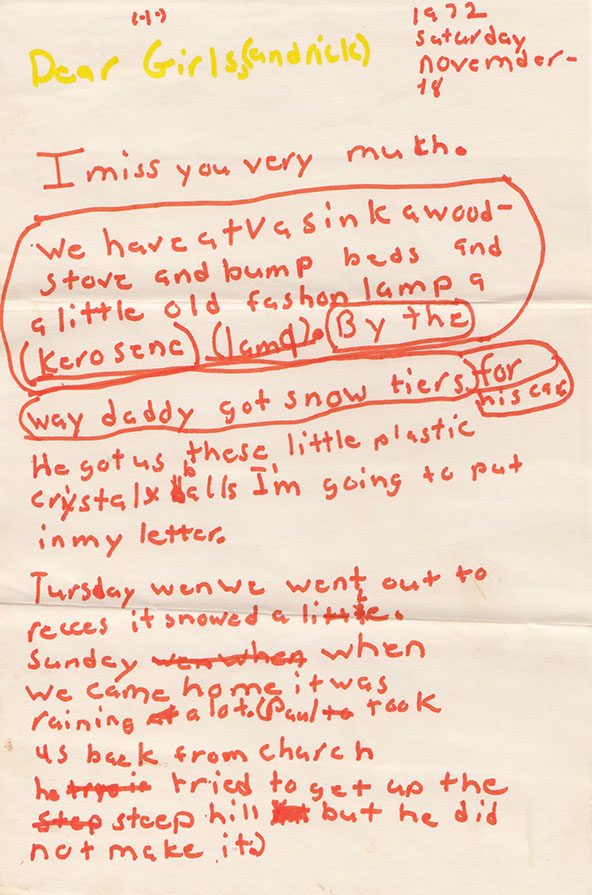 (.1.)
1972
saturday
novemder-
18
Dear Girls,(andrick)
I miss you very muth.
We have a tV a sink a wood-
stove and bump beds and
a little old fashon lamp a
(kerosene) (lamp). By the
way daddy got snow tiers for
his car
He got us these little plastic
crystalx balls I'm going to put
in my letter.
Tursday wen we went out to
recces it snowed a little.
Sunday wen when when
we came home it was
raining at a lot. (Paul to took
us back from church
he trye in tried to get up the
step steep hill but he did
not make it.)